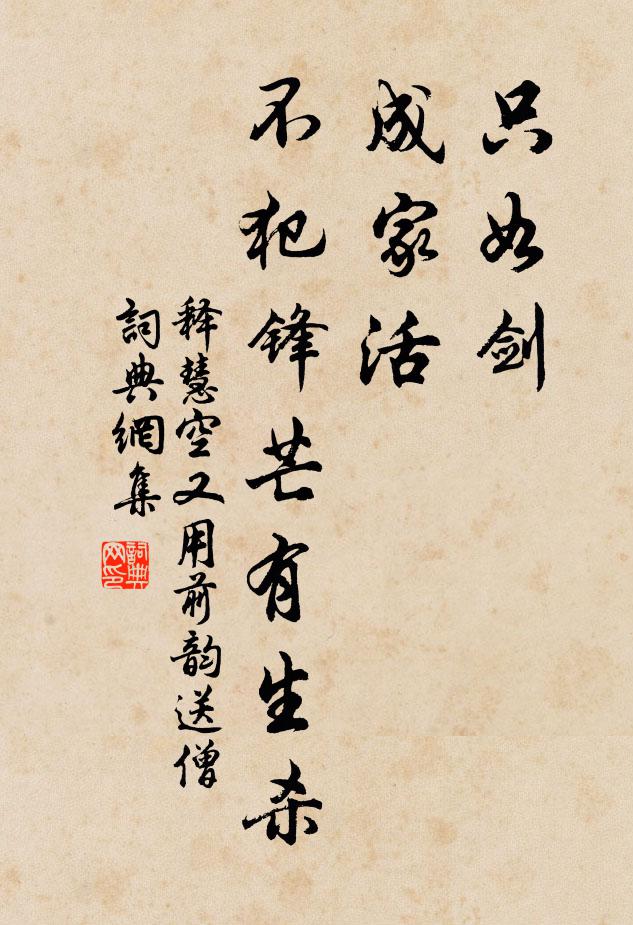 只如剑
成家活
不犯锋芒有生杀
释慧空又用前韵送僧
詞典網集
詞典网印